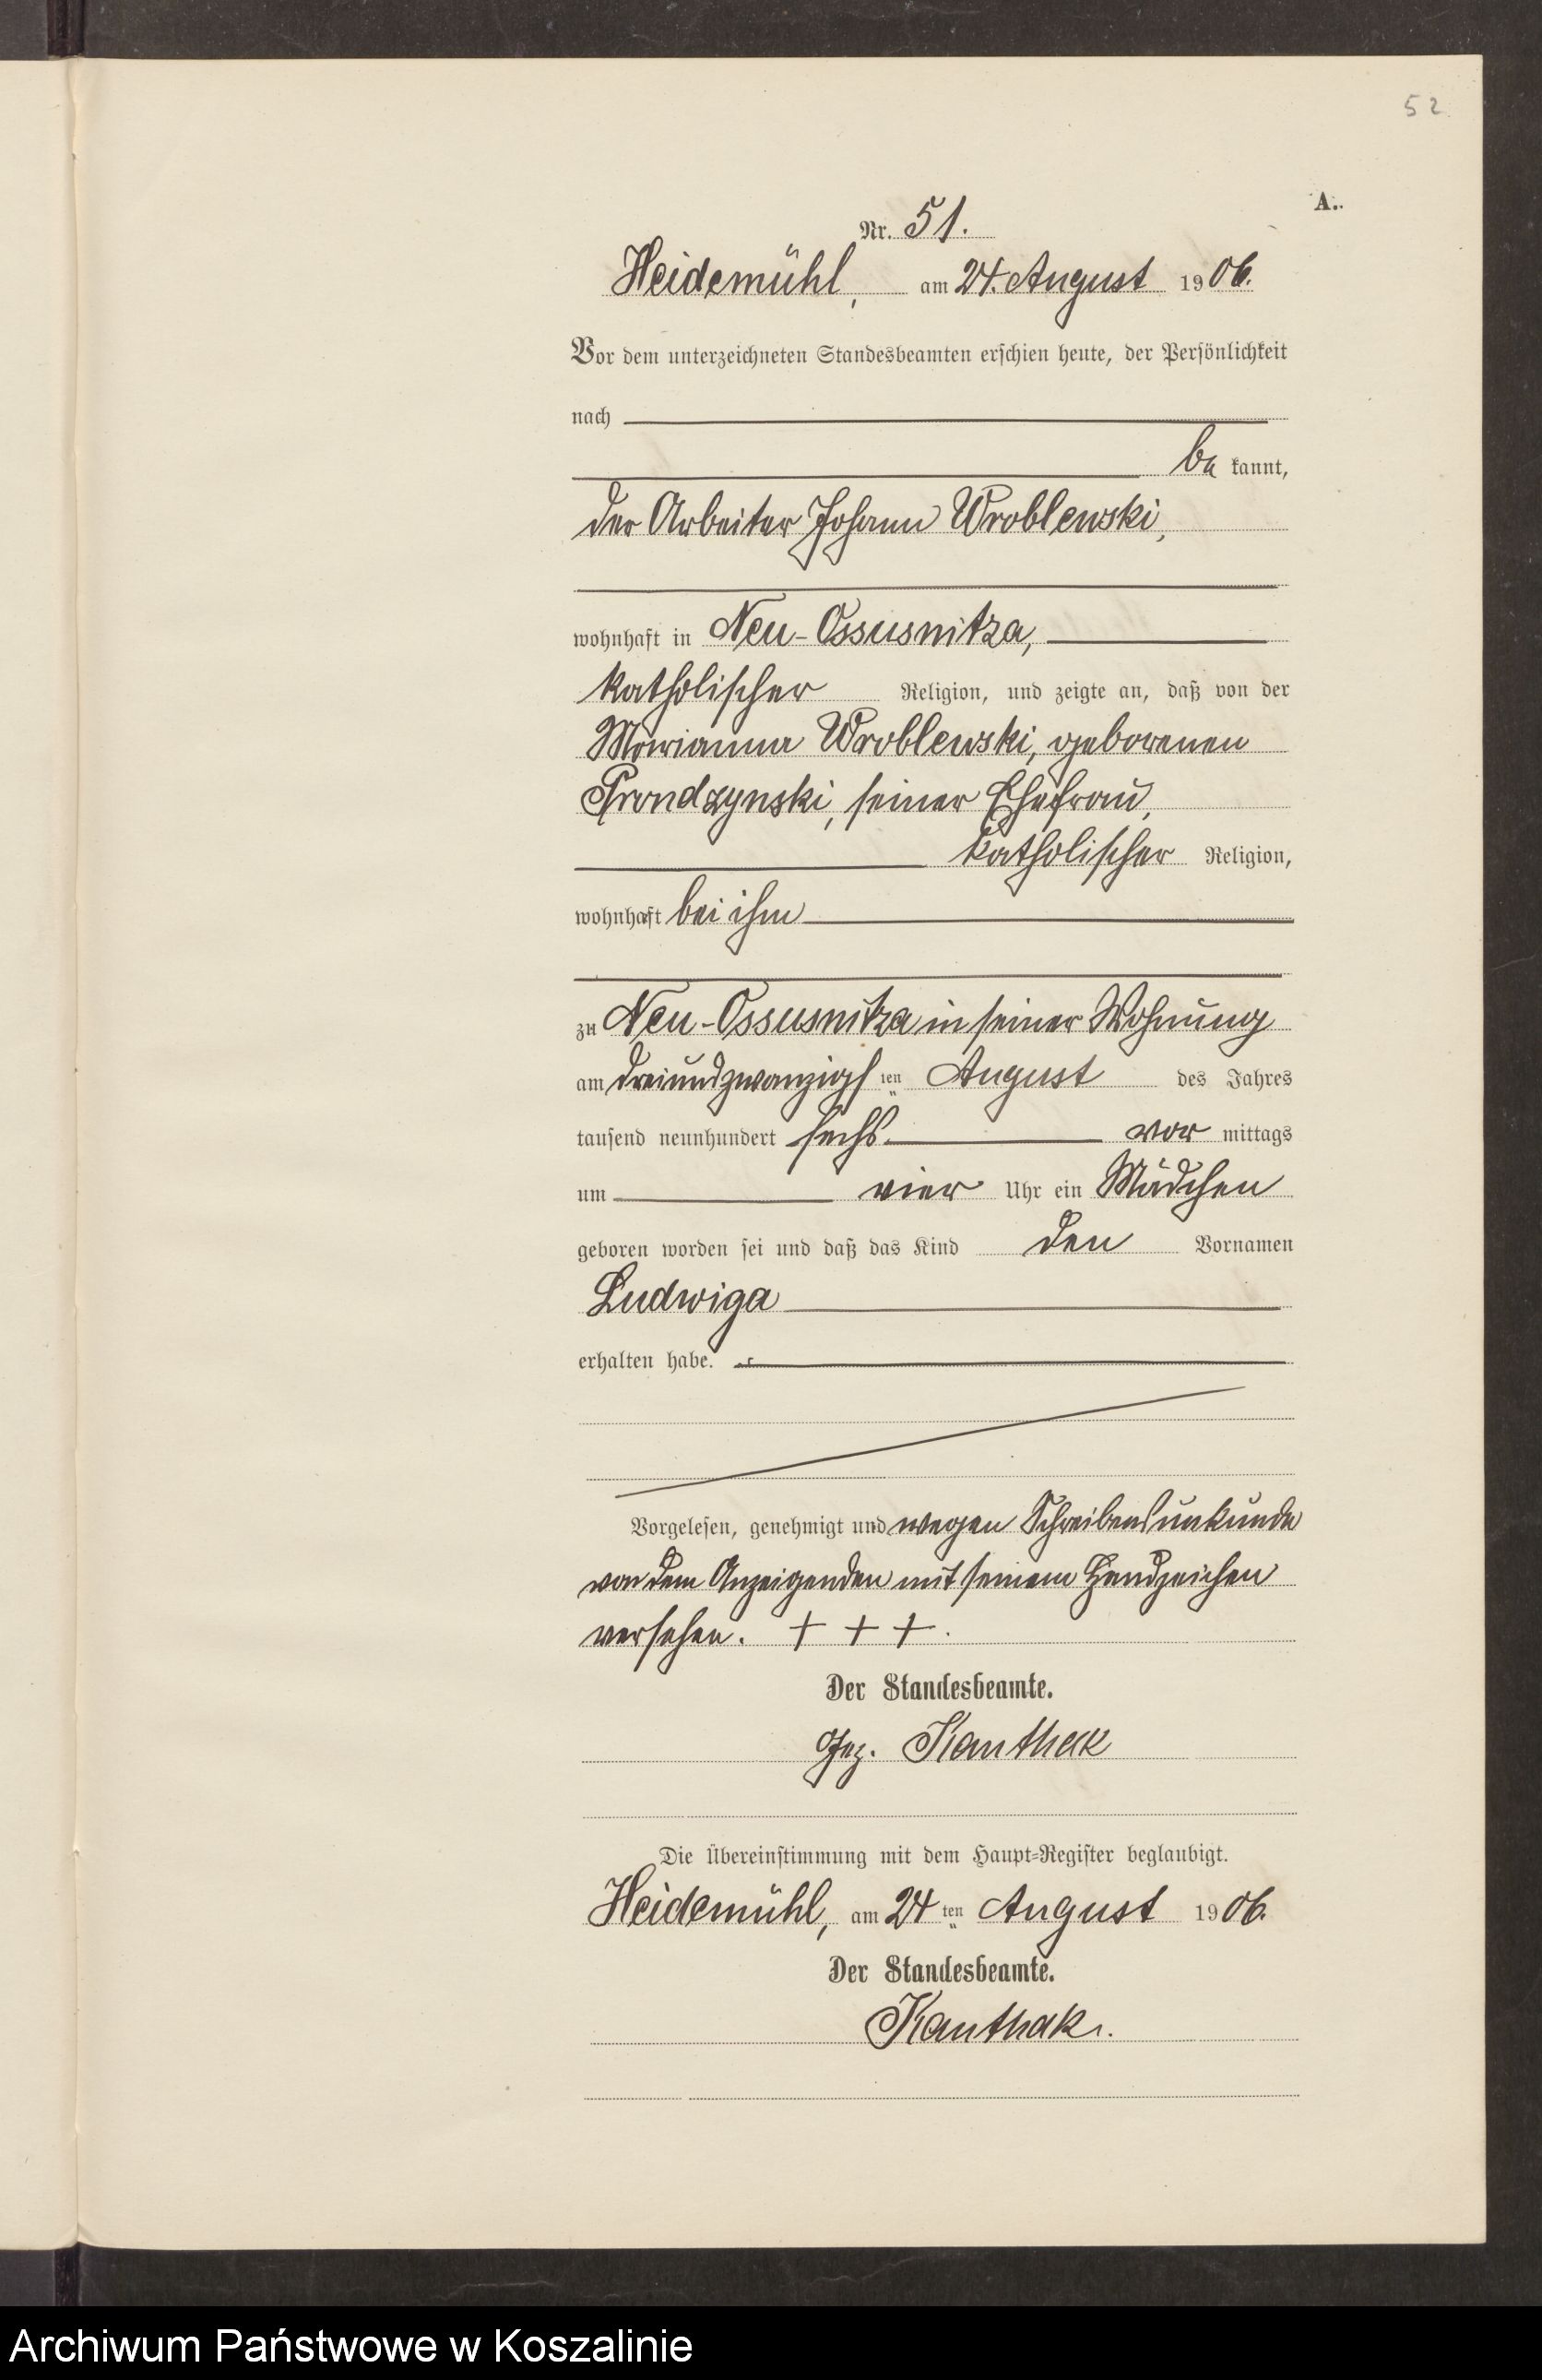 52
A.
Nr. 51.
Heidemühl, am 24. August 1906.
Vor dem unterzeichneten Standesbeamten erschien heute, der Persönlichkeit
nach
be kannt,
der Arbeiter Johann Wroblewski,
wohnhaft in Neu-Ossusnitza,
katholischer Religion, und zeigte an, daß von der
Marianna Wroblewski, geborenen
Prondzynski, seiner Ehefrau,
katholischer Religion,
wohnhaft bei ihm
zu Neu-Ossusnitza in seiner Wohnung
am dreiundzwanzigsten August des Jahres
tausend neunhundert sechs vor mittags
um vier Uhr ein Mädchen
geboren worden sei und daß das Kind den Vornamen
Ludwiga
erhalten habe.
Vorgelesen, genehmigt und wegen Schreibensunkunde
von dem Anzeigenden mit seinem Handzeichen
versehen. + + +.
Der Standesbeamte.
Gez. Kanthak
Die Übereinstimmung mit dem Haupt-Register beglaubigt.
Heidemühl, am 24ten August 1906.
Der Standesbeamte.
Kanthak.
Archiwum Państwowe w Koszalinie